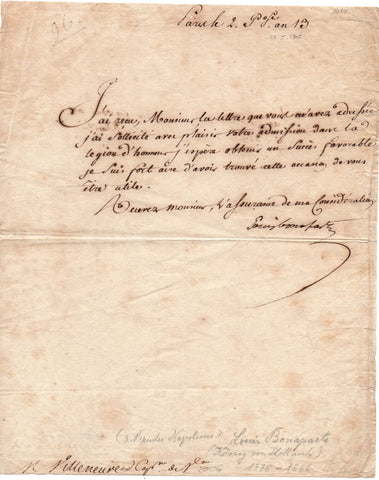 Paris le 2. Pose an 13
J'ai recu, Monsieur la lettre que vous m'avez adressée
j'ai sollicité avec plaisir votre admission dans la
legion d'honneur j'espère obtenir un Succès favorable
je Suis fort aise d'avoir trouvé cette occasion de vous
être utile.
Recevez monsieur, l'assurance de ma Considération
Louis bonaparte
Louis Bonaparte
(König von Holland)
1778-1846
Villeneuve